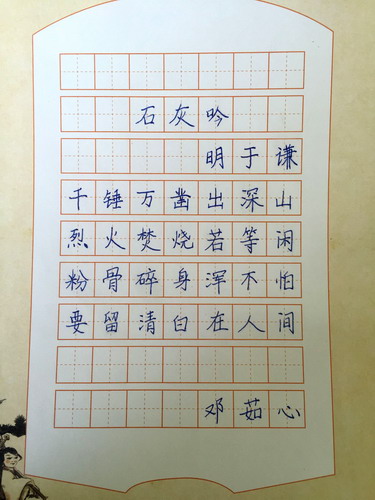 石灰吟
明于谦
千锤万凿出深山
烈火焚烧若等闲
粉骨碎身浑不怕
要留清白在人间
邓茹心